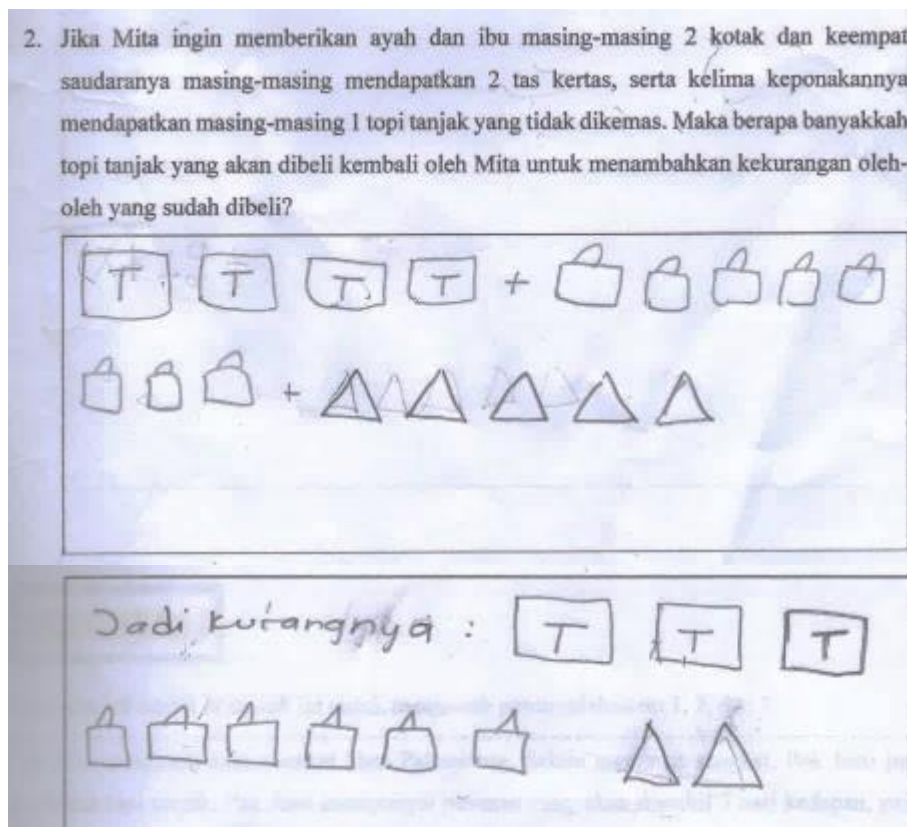 2. Jika Mita ingin memberikan ayah dan ibu masing-masing 2 kotak dan keempat
saudaranya masing-masing mendapatkan 2 tas kertas, serta kelima keponakannya
mendapatkan masing-masing 1 topi tanjak yang tidak dikemas. Maka berapa banyakkah
topi tanjak yang akan dibeli kembali oleh Mita untuk menambahkan kekurangan oleh-
oleh yang sudah dibeli?
T T T T +
+
Jadi kurangnya : T T T